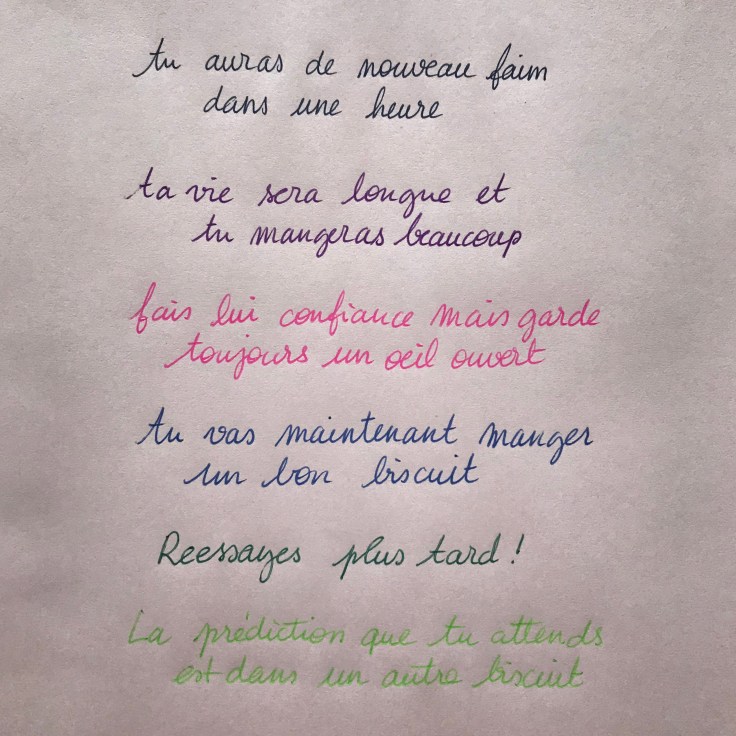 tu auras de nouveau faim
dans une heure
ta vie sera longue et
tu mangeras beaucoup
fais lui confiance mais garde
toujours un oeil ouvert
tu vas maintenant manger
un bon biscuit
Reessayes plus tard !
La prédiction que tu attends
est dans un autre biscuit